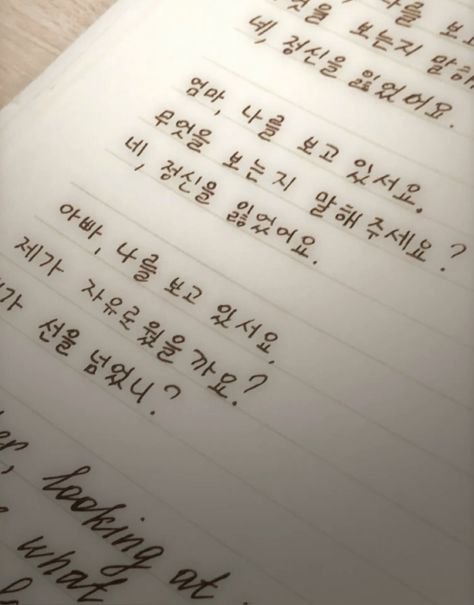 나를 보고
무엇을 보는지 말해
네, 정신을 잃었어요.
엄마, 나를 보고 있서요.
무엇을 보는지 말해 주세요?
네, 정신을 잃었어요.
아빠, 나를 보고 있서요.
제가 자유로웠을 까요?
선을 넘었니?
looking at
what